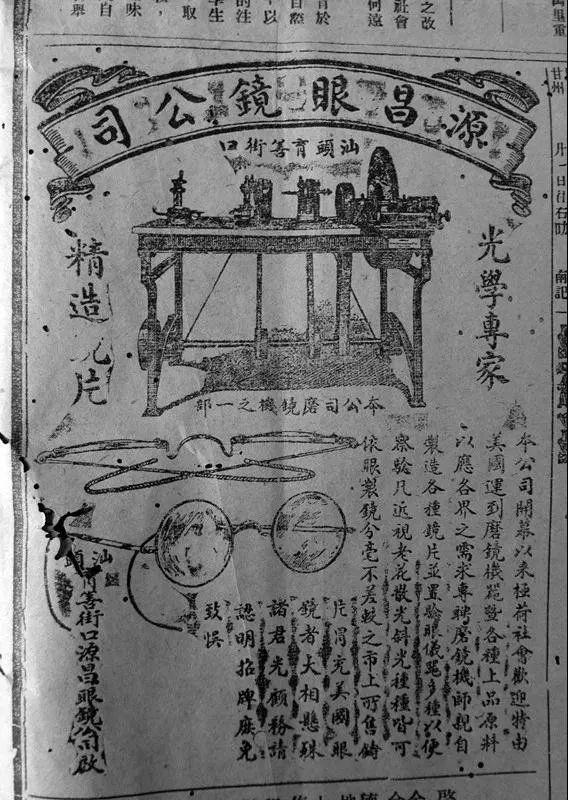 之改
社會
何遠
育於
的注
學生
取
味
自
里重
甘州
源昌眼鏡公司
汕頭育善街口
光學專家
精造片
本公司磨鏡機之一部
本公司開幕以來極荷社會歡迎特由
美國運到磨鏡機器暨各種上品原料
以應各界之需求專聘磨鏡機師親自
製造各種鏡片並置驗眼儀器多種以便
察驗凡近視老花散光斜光種種皆可
依眼製鏡分毫不差較之市上所售鑄
片冒充美國眼
鏡者大相懸殊
諸君光顧務請
認明招牌庶免
致悞
汕頭育善街口源昌眼鏡公司啟